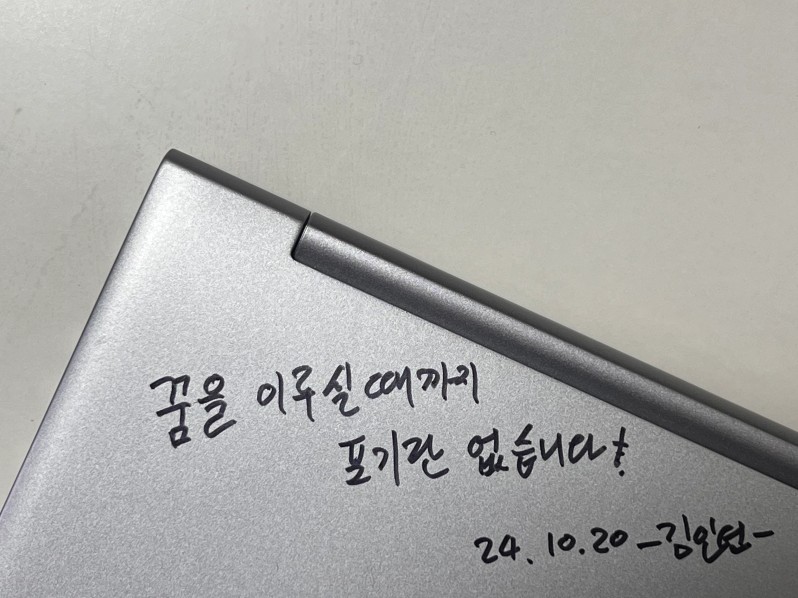 꿈을 이루실 때까지
포기란 없습니다!
24.10.20 -김인연-